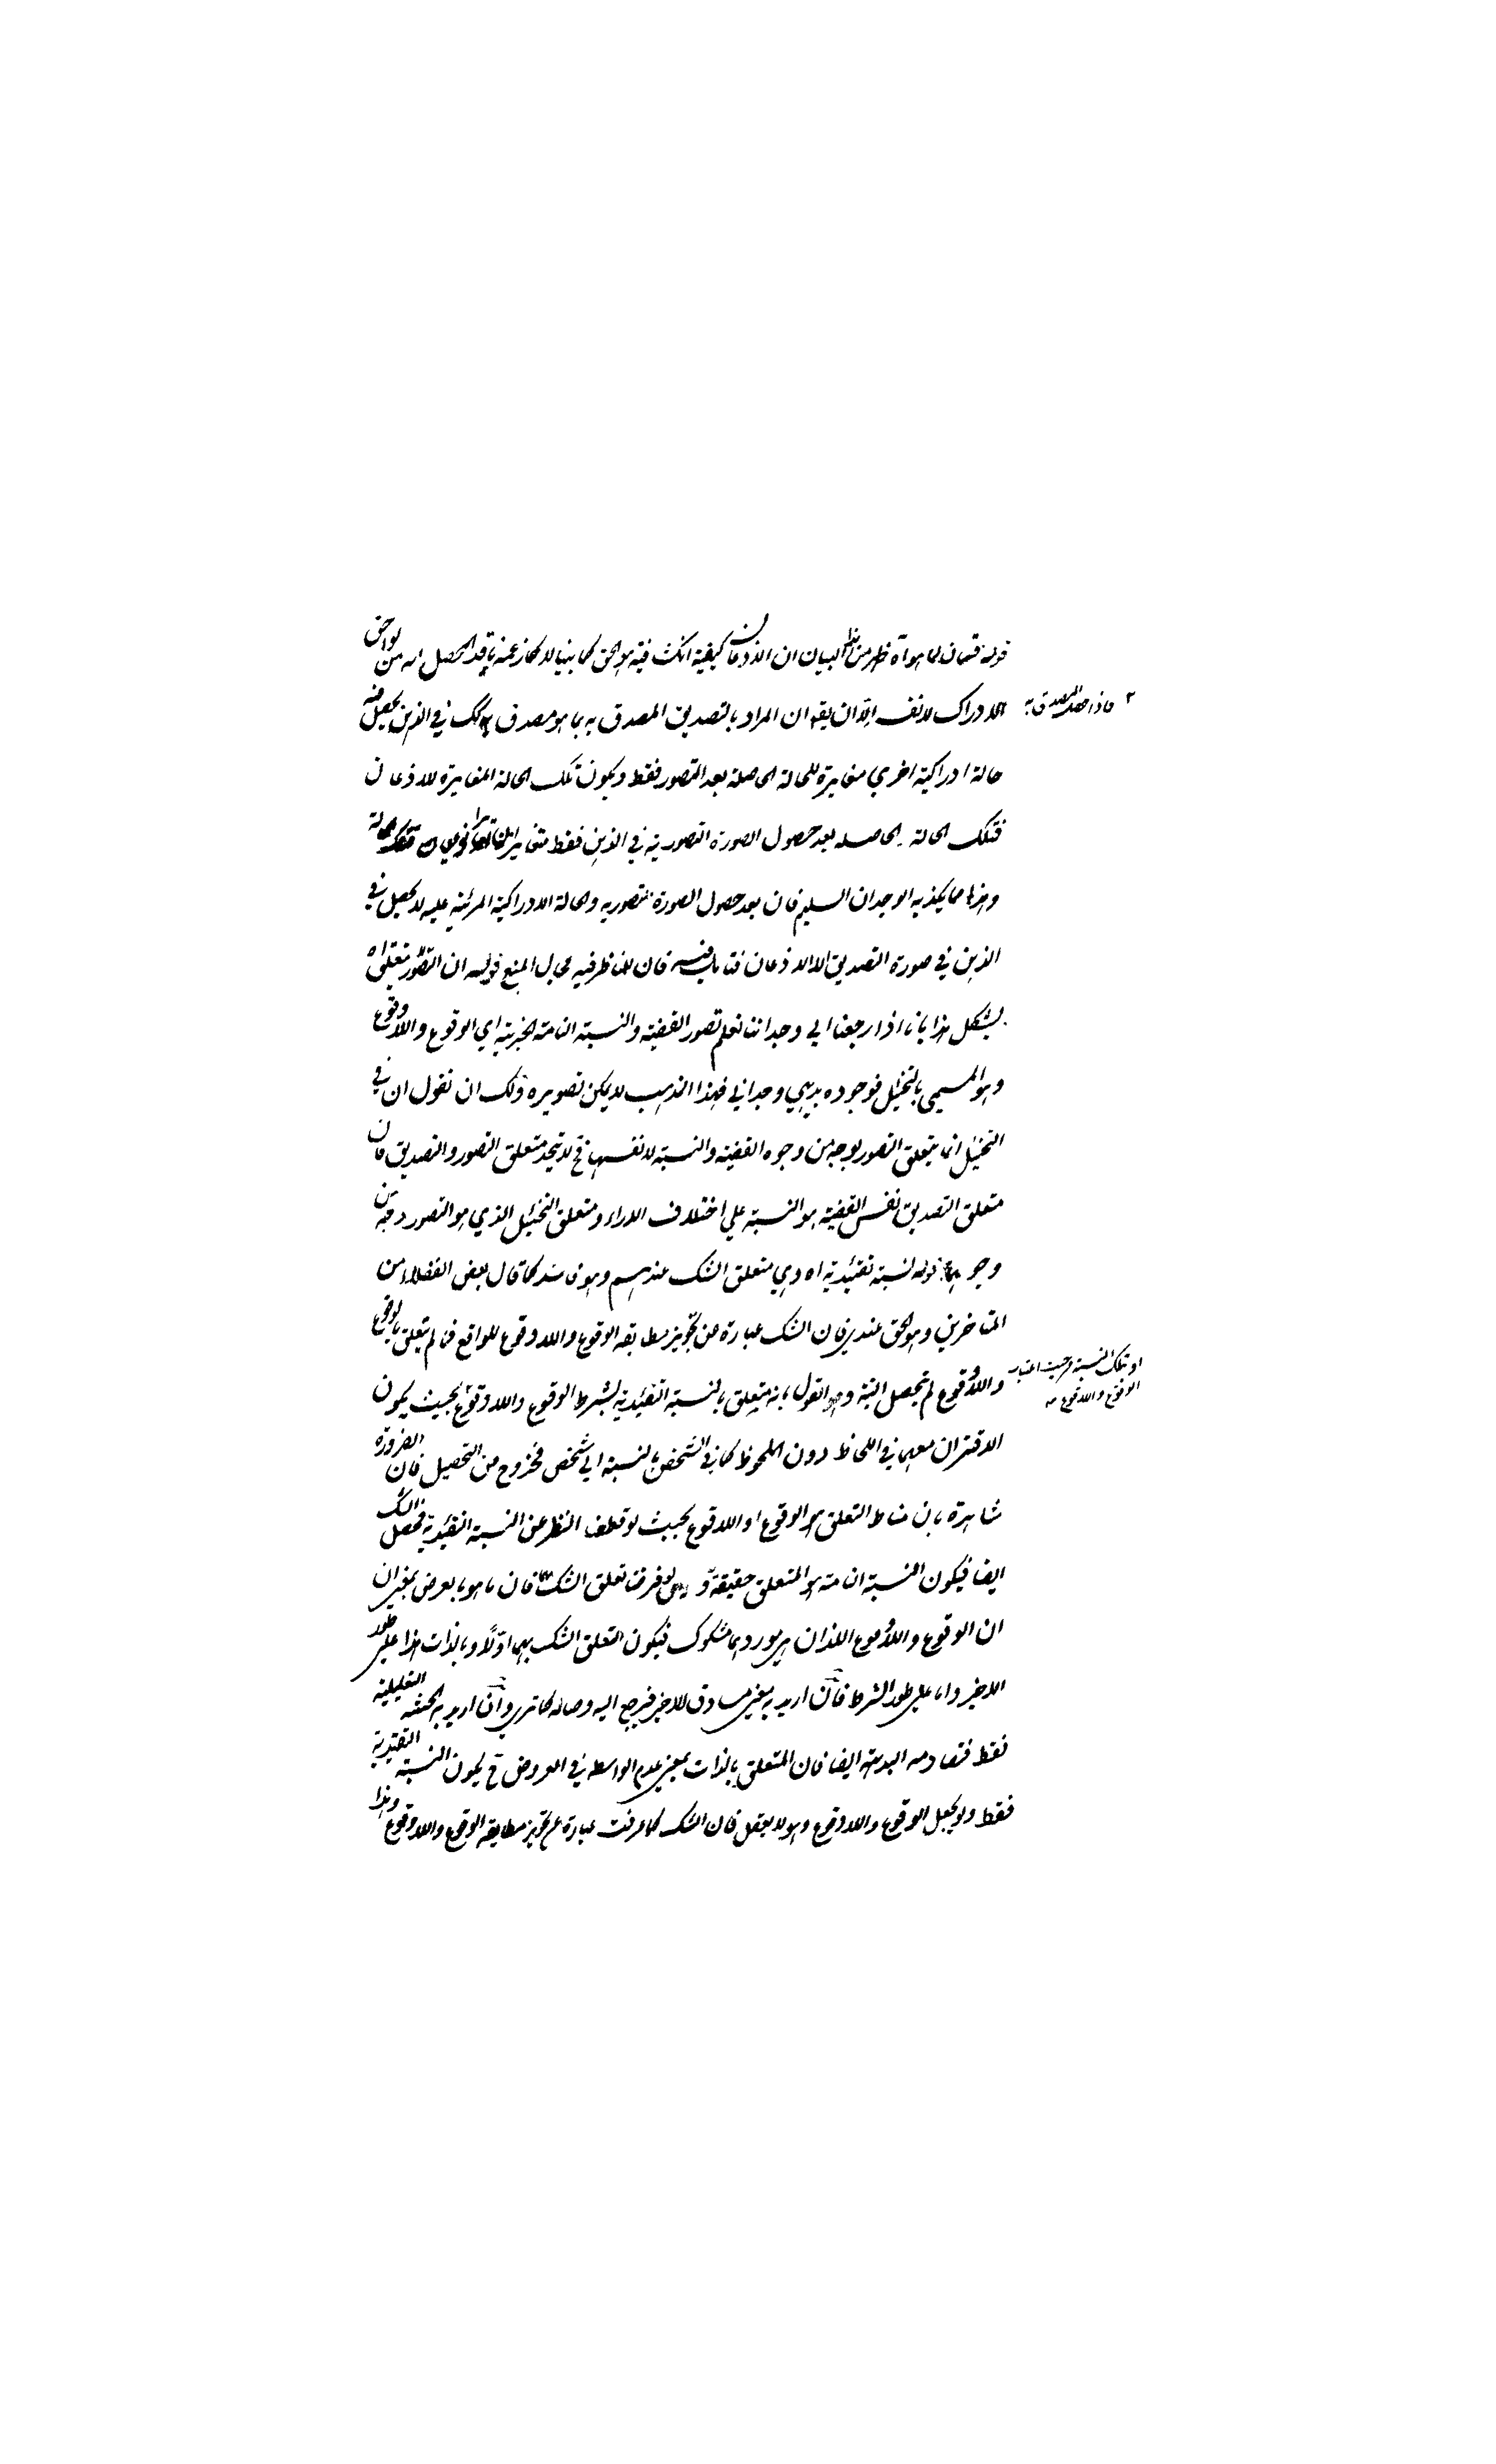 قوله قسمان لما هو آه ظهر من هذا البيان ان الاذعان كيفية انكشافية هو الحق كما بينا لا كما زعمه ناقد المحصل انه من لواحق
الادراك لا نفسه الا ان يقه ان المراد بالتصديق المصدق به بما هو مصدق به كك في الذهن يحصل فيه
فاذا حصل المصدق به
حالة ادراكية اخري مغايرة للحالة الحاصلة بعد التصور فقط ويكون تلك الحالة المغايرة للاذعان
فتلك الحالة الحاصلة بعد حصول الصورة التصورية في الذهن فقط متغايران تغايرا نوعيا
وهذا مما يكذبه الوجدان السليم فان بعد حصول الصورة التصورية والحالة الادراكية المرتبة عليه لا يحصل في
الذهن في صورة التصديق الا الاذعان فتامل فيه فان للناظر فيه مجال المنع قوله ان التصور متعلق اه
يشكل هذا بانا اذا رجعنا الي وجداننا نعلم تصور القضية والنسبة التامة الخبرية اي الوقوع واللاوقوع
وهو المسمي بالتخييل فوجوده بديهي وجداني فهذا المذهب لا يمكن تصويره ولك ان تقول ان في
التخييل انما يتعلق التصور بوجه من وجوه القضية والنسبة لا نفسها فح لا يتحد متعلق التصور والتصديق فان
متعلق التصديق نفس القضية هو النسبة علي اختلاف الاراء ومتعلق التخييل الذي هو التصور وجه من
وجوهها قوله نسبة تقييدية اه وهي متعلق الشك عندهم وهو فاسد كما قال بعض الفضلاء من
المتاخرين وهو الحق عندي فان الشك عبارة عن تجويز مطابقه الوقوع واللاوقوع للواقع فما لم يتعلق بالوقوع
واللاوقوع لم يحصل البتة والقول بانه متعلق بالنسبة التقييدية بشرط الوقوع واللاوقوع بحيث يكون
او بتلك النسبة من حيث اعتبار
الوقوع واللاوقوع منه
الاقتران معهما في اللحاظ دون الملحوظ كما في الشخص بالنسبة الي شخص فخروج من التحصيل فان الضرورة
شاهدة بان مناط التعلق هو الوقوع او اللاوقوع بحيث لو قطع النظر عن النسبة التقييدية فحصل الشك
ايضا فيكون النسبة التامة هو المتعلق حقيقة ولو فرضنا تعلق الشك فان ما هو بالعرض بمعني ان
ان الوقوع واللاوقوع اللذان هو موردهما مشكوك فيكون التعلق الشك بهما اولا وبالذات هذا علي طور
الاخير واما علي طور الشرط فان اريد به معني مساوق للاخير فيرجع اليه وحاله كما تري وان اريد به الحيثية التعليلية
فقط فتصادمه البديهة ايضا فان المتعلق بالذات بمعني عدم الواسطه في العروض ح يكون النسبة التقييدية
فقط ولو بجعل الوقوع واللاوقوع وهو لا يعقل فان الشك كما عرفت عبارة عن تجويز مطابقه الوقوع واللاوقوع وهذا